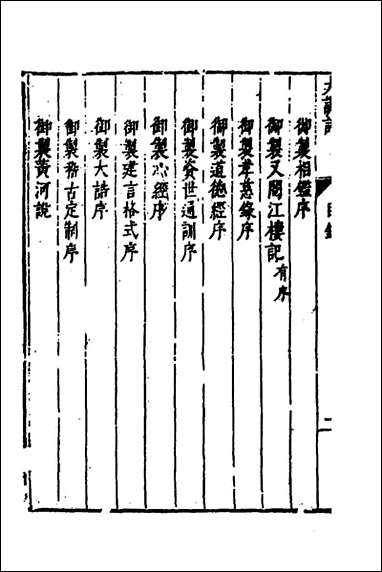 御製相鑑序
御製又閱江樓記有序
御製孝慈錄序
御製道德經序
御製資世通訓序
御製心經序
御製建言格式序
御製大誥序
御製稽古定制序
御製黃河說